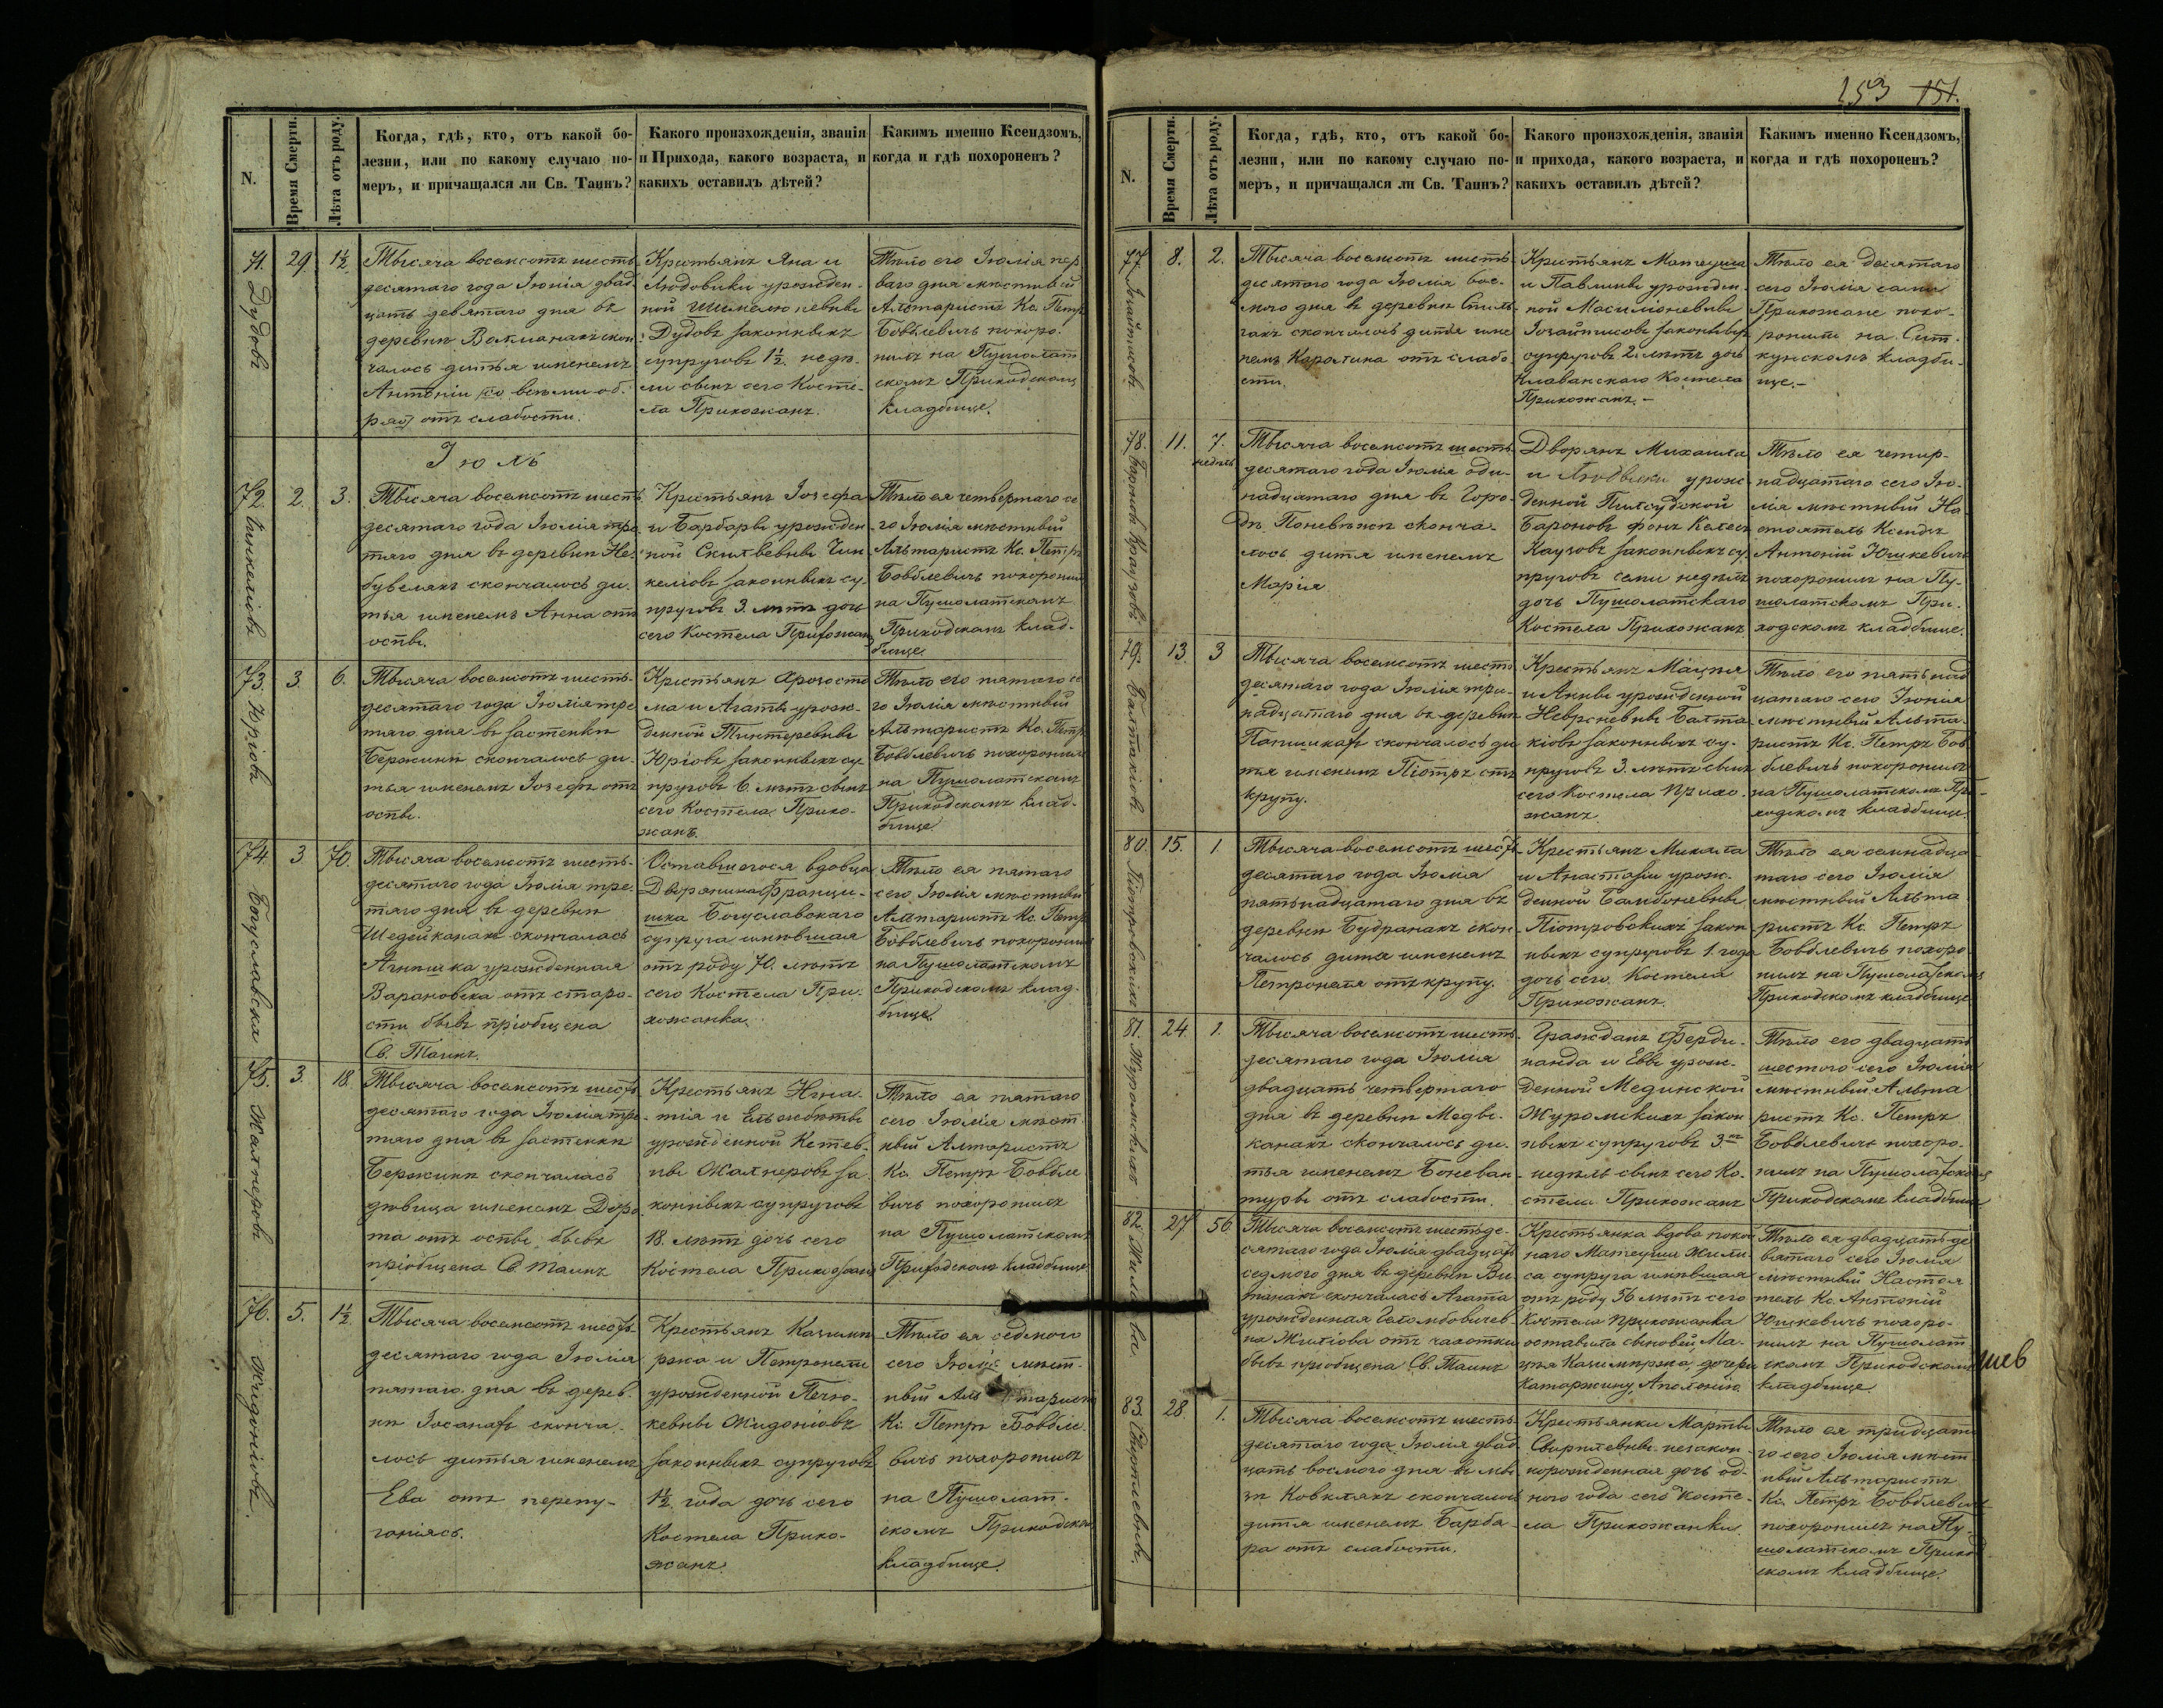 253 151.
N.
Время Смерти.
Лѣта отъ роду.
Когда, гдѣ, кто, отъ какой бо-
лезни, или по какому случаю по-
меръ, и причащался ли Св. Таинъ?
Какого произхожденія, званія
и Прихода, какого возраста, и
какихъ оставилъ дѣтей?
Каким именно Ксендзомъ,
когда и гдѣ похороненъ?
71. Дудовъ
29
1½
Тысяча восемсотъ шесть
десятаго года Іюнія двад
цать девятаго дня въ
деревни скон
чалось дитья именемъ
Антоній со всеми об.
ряд отъ слабости.
Крестьянъ Яна и
Людовики урожден-
ной
Дудовъ законныхъ
супруговъ 1½ недѣ-
ли сынъ сего Косте-
ла Прихожанъ.
Тѣло его Іюлія пер
ваго дня мѣстный
Альтаристъ Кс. Петръ
Бовблевичъ похоро-
нилъ на Пушолат
скомъ Приходскомъ
кладбище.
Іюль
72. Чинкеліовъ
2.
3.
Тысяча восемсотъ шесть
десятаго года Іюлія тре
тяго дня въ деревни Не-
бувелахъ скончалось ди-
тья именемъ Анна отъ
оспы.
Крестьянъ Іозефа
и Барбары урожден
ной Скилвевны Чин
келіовъ законныхъ су
пруговъ 3. лѣтъ дочь
сего Костела Прихожанъ
Тѣло ея четвертаго се
го Іюлія мѣстный
Альтаристъ Кс. Петръ
Бовблевичъ похоронилъ
на Пушолатскомъ
Приходскомъ клад-
бище.
73. Юріовъ
3.
6.
Тысяча восемсотъ шесть-
десятаго года Іюлія тре
тяго дня въ застенки
Бержини скончалось ди-
тья именемъ Іозефъ отъ
оспы.
Крестьянъ Хрозосто
ма и Агаты урож-
денной Тинтеревны
Юріовъ законныхъ су
пруговъ 6 лѣтъ сынъ
сего Костела Прихо-
жанъ.
Тѣло его пятаго се
го Іюлія мѣстный
Альтаристъ Кс. Петръ
Бовблевичъ похоронилъ
на Пушолатскомъ
Приходскомъ клад-
бище.
74. Богуславска
3
70.
Тысяча восемсотъ шесть-
десятаго года Іюлія тре
тяго дня въ деревни
Шедейканахъ скончалась
Агнишка урожденная
Варановска отъ старо-
сти бывъ пріобщена
Св. Таинъ.
Оставшегося вдовца
Дворянина Франци-
шка Богуславскаго
супруга имѣвшая
отъ роду 70. лѣтъ
сего Костела При-
хожанка.
Тѣло ея пятаго
сего Іюлія мѣстный
Альтаристъ Кс. Петръ
Бовблевичъ похоронилъ
на Пушолатскомъ
Приходскомъ клад-
бище.
75. Жалнеровъ
3.
18.
Тысяча восемсотъ шесть
десятаго года Іюлія тре
тяго дня въ застенки
Бержини скончалась
дѣвица именемъ Доро
та отъ оспы бывъ
пріобщена Св. Таинъ
Крестьянъ Игна-
тія и Ельжбеты
урожденной Кетев-
ны Жалнеровъ за
конныхъ супруговъ
18. лѣтъ дочь сего
Костела Прихожанъ
Тѣло ея пятаго
сего Іюлія мѣст
ный Алтаристъ
Кс. Петръ Бовбле
вичъ похоронилъ
на Пушолатскомъ
Приходскомъ кладбище
76. Жидоніовъ.
5.
1½
Тысяча восемсотъ шесть-
десятаго года Іюлія
пятаго дня въ дерев-
ни Іосанахъ сконча-
лось дитья именемъ
Ева отъ перепу-
гоніясь.
Крестьянъ Казими
ржа и Петронели
урожденной Печю-
кевны Жидоніовъ
законныхъ супруговъ
1½ года дочь сего
Костела Прихо-
жанъ.
Тѣло ея седмого
сего Іюлія мѣст-
ный Альтаристъ
Кс. Петръ Бовбле-
вичъ похоронилъ
на Пушолат-
скомъ Приходском
кладбище.
N.
Время Смерти.
Лѣта отъ роду.
Когда, гдѣ, кто, отъ какой бо-
лезни, или по какому случаю по-
меръ, и причащался ли Св. Таинъ?
Какого произхожденія, званія
и прихода, какого возраста, и
какихъ оставилъ дѣтей?
Каким именно Ксендзомъ,
когда и гдѣ похороненъ?
77.
8.
2.
Тысяча восемсотъ шесть
десятаго года Іюлія вос-
мого дня въ деревни
скончалось дитья име
немъ Каролина отъ слабо
сти.
Крестьянъ Матеуша
и Павлины урожден-
ной Масиліоневны
законныхъ
супруговъ 2. лѣтъ дочь
Клаванскаго Костела
Прихожанъ.-
Тѣло ея десятаго
сего Іюлія сами
Прихожане похо-
ронили на Сит-
кунскомъ кладби-
ще.-
78. Бароновъ Каузовъ
11.
7.
недѣль
Тысяча восемсотъ шесть
десятаго года Іюлія оди-
надцатаго дня въ Горо
дѣ Поневѣжѣ сконча-
лось дитя именемъ
Марія
Дворянъ Михаила
и Людвики урож
денной Пилсудской
Бароновъ фонъ
Каузовъ законныхъ су
пруговъ семи недѣль
дочь Пушолатскаго
Костела Прихожанъ
Тѣло ея четыр-
надцатаго сего Ію-
лія мѣстный На
стоятель Ксендзъ
Антоній Юшкевичъ
похоронилъ на Пу-
шолатскомъ При-
ходскомъ кладбище.
79. Балтакіовъ
13.
3
Тысяча восемсотъ шесть
десятаго года Іюлія три-
надцатаго дня въ деревни
скончалось ди
тья именемъ Піотръ отъ
крупу.
Крестьянъ Мацея
и Анны урожденной
Неврсневны Балта
кіовъ законныхъ су-
пруговъ 3. лѣтъ сынъ
сего Костела Прихо-
жанъ
Тѣло его пятьнад
цатаго сего Іюлія
мѣстный Альта-
ристъ Кс. Петръ Бов
блевичъ похоронилъ
на Пушолатскомъ При
ходскомъ кладбище.
80. Піотровскихъ
15.
1.
Тысяча восемсотъ шесть
десятаго года Іюлія
пятьнадцатаго дня въ
деревни Будранахъ скон-
чалось дитя именемъ
Петронеля отъ крупу.
Крестьянъ Михала
и Анастазіи урож-
денной Бамбоневны
Піотровскихъ закон
ныхъ супруговъ 1. года
дочь сего Костела
Прихожанъ.
Тѣло ея семнадца
таго сего Іюлія
мѣстный Альта
ристъ Кс. Петръ
Бовблевичъ похоро
нилъ на Пушолатскомъ
Приходскомъ кладбище
81. Журомскихъ
24
1.
Тысяча восемсотъ шесть-
десятаго года Іюлія
двадцать четвертаго
дня въ деревни Медве-
канахъ скончалось ди-
тья именемъ Бонаван
туры отъ слабости.
Гражданъ Ферди-
нанда и Евы урож-
денной Мединской
Журомскихъ закон
ныхъ супруговъ 3хъ
недѣль сынъ сего Ко-
стела Прихожанъ
Тѣло его двадцать
шестого сего Іюлія
мѣстный Альта
ристъ Кс. Петръ
Бовблевичъ похоро-
нилъ на Пушолатскомъ
Приходскомъ кладбище
82.
27
56
Тысяча восемсотъ шестьде-
сятаго года Іюлія двадцать
седмого дня въ деревни Ви
танахъ скончалась Агата
урожденная Голомбовичев
на Жиліова отъ чахотки
бывъ пріобщена Св. Таинъ
Крестьянка вдова покой
наго Матеуша Жили
са супруга имѣвшая
отъ роду 56 лѣтъ сего
Костела прихожанка
оставила сыновей Ма-
цея Казимиржа, дочери
Катаржину, Аполонію
Тѣло ея двадцать де
вятаго сего Іюля
мѣстный Настоя
тель Кс. Антоній
Юшкевичъ похоро-
нилъ на Пушолат
скомъ Приходскомъ
кладбище.
83.
28.
1.
Тысяча восемсотъ шесть
десятаго года Іюлія двад
цать восмого дня въ мы
зѣ Ковклахъ скончалось
дитя именемъ Барба
ра отъ слабости.
Крестьянки Марты
Свирплевны незакон
норожденная дочь од-
ного года сего Косте-
ла Прихожанки
Тѣло ея тридцата
го сего Іюлія мѣст
ный Альтаристъ
Кс. Петръ Бовблевичъ
похоронилъ на Пу-
шолатскомъ Приход
скомъ кладбище.